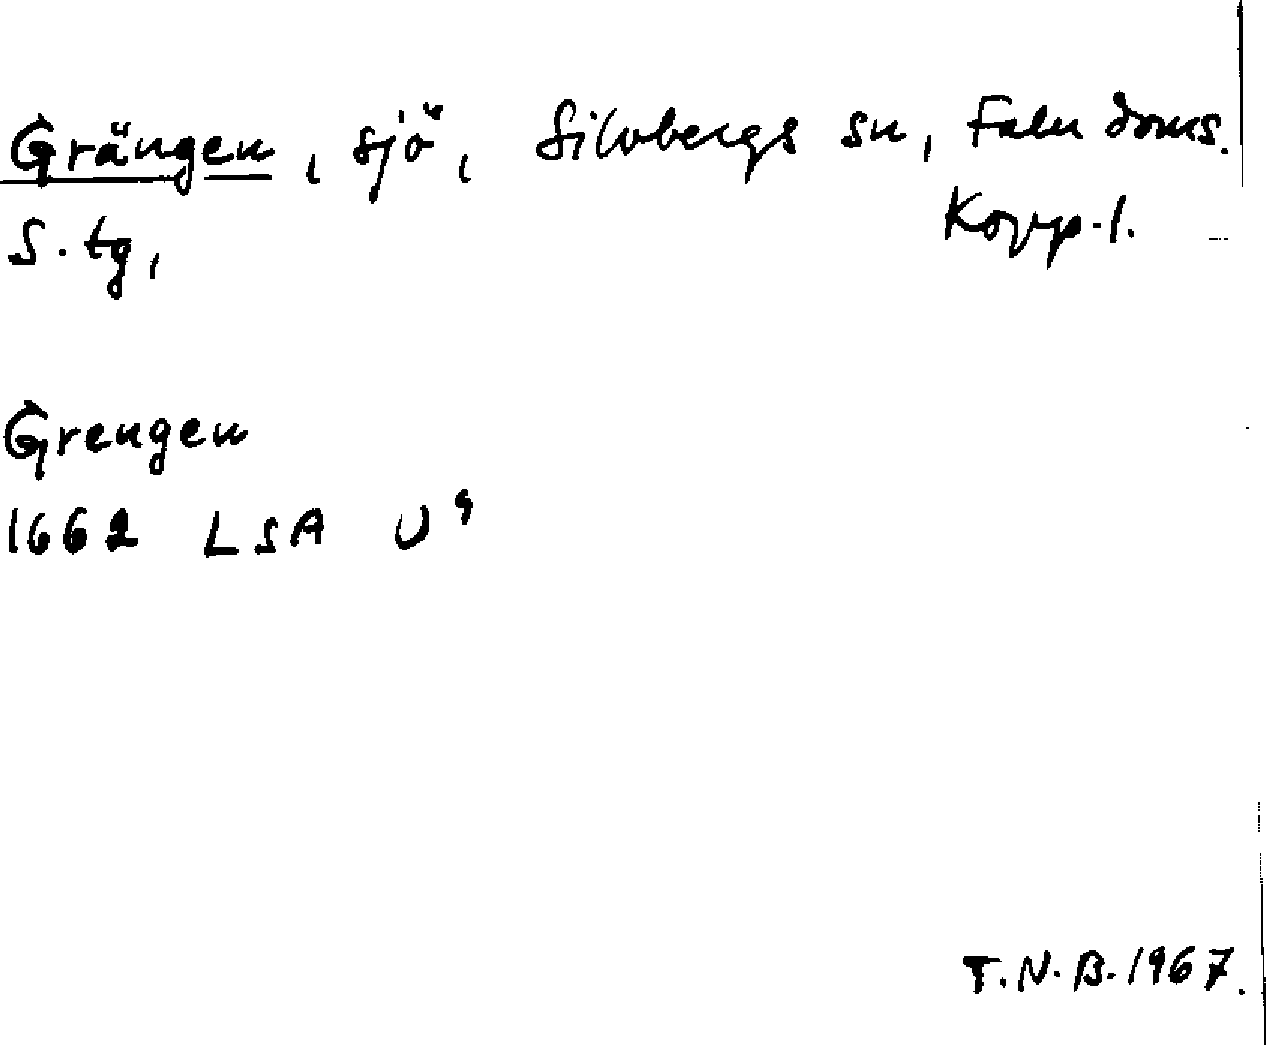 Grängen, sjö, Silvbergs sn, Falu doms.
S. tg, Kopp. l.
Grengen
1662 LSA U⁹
T.N.B. 1967.